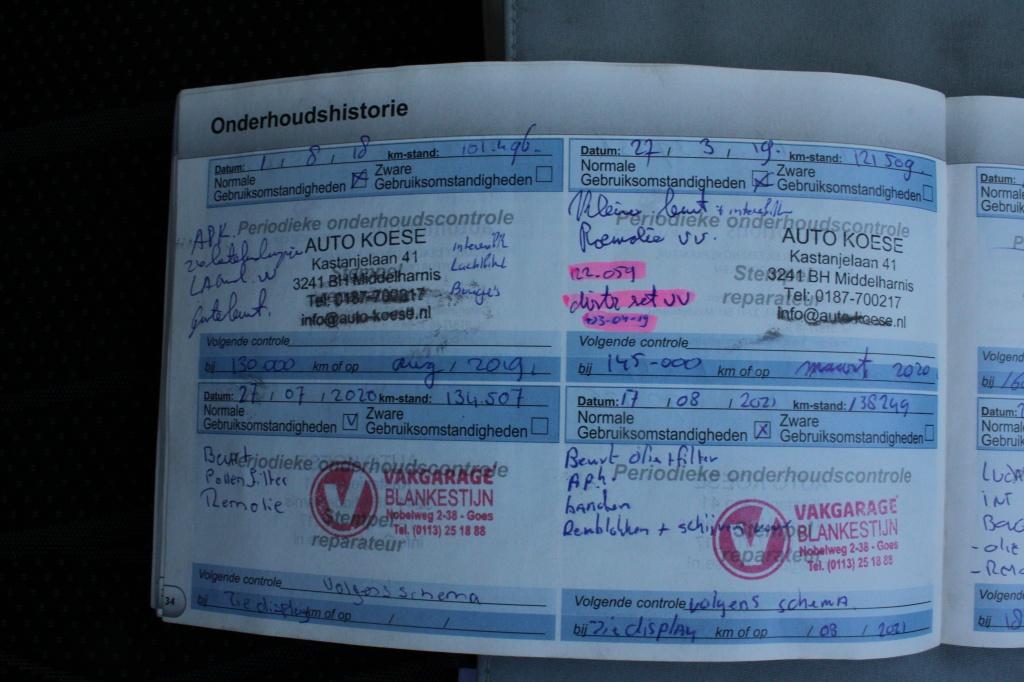 Onderhoudshistorie
Datum: 1 / 8 / 18 km-stand: 101.496.-
Normale Gebruiksomstandigheden Zware Gebruiksomstandigheden
Periodieke onderhoudscontrole
APK.
AUTO KOESE
Kastanjelaan 41
3241 BH Middelharnis
Tel: 0187-700217
info@auto-koese.nl
Stempel
reparateur
Interieurfilt
Luchtfilter
Bougies
grote beurt.
Volgende controle
bij 130.000 km of op aug / 2019.
Datum: 27 / 3 / 19. km-stand: 121509
Normale Gebruiksomstandigheden Zware Gebruiksomstandigheden
Periodieke onderhoudscontrole
Kleine beurt + interieurfilt
Remolie vv.
122.059
distr set vv
03-04-19
AUTO KOESE
Kastanjelaan 41
3241 BH Middelharnis
Tel: 0187-700217
info@auto-koese.nl
Stempel
reparateur
Volgende controle
bij 145-000 km of op maart 2020
Datum: 27 / 07 / 2020 km-stand: 134.507
Normale Gebruiksomstandigheden V Zware Gebruiksomstandigheden
Periodieke onderhoudscontrole
Beurt
Pollenfilter
Remolie
VAKGARAGE
BLANKESTIJN
Nobelweg 2-38 - Goes
Tel. (0113) 25 18 88
Stempel
reparateur
Volgende controle volgens schema
bij Zie display km of op / /
34
Datum: 17 / 08 / 2021 km-stand: 138249
Normale Gebruiksomstandigheden X Zware Gebruiksomstandigheden
Periodieke onderhoudscontrole
Beurt olie + filter
APK
banden
Remblokken + schijven
VAKGARAGE
BLANKESTIJN
Nobelweg 2-38 - Goes
Tel. (0113) 25 18 88
reparateur
Volgende controle volgens schema
bij Zie display km of op / 08 / 2021
Datum:
Volgend
bij